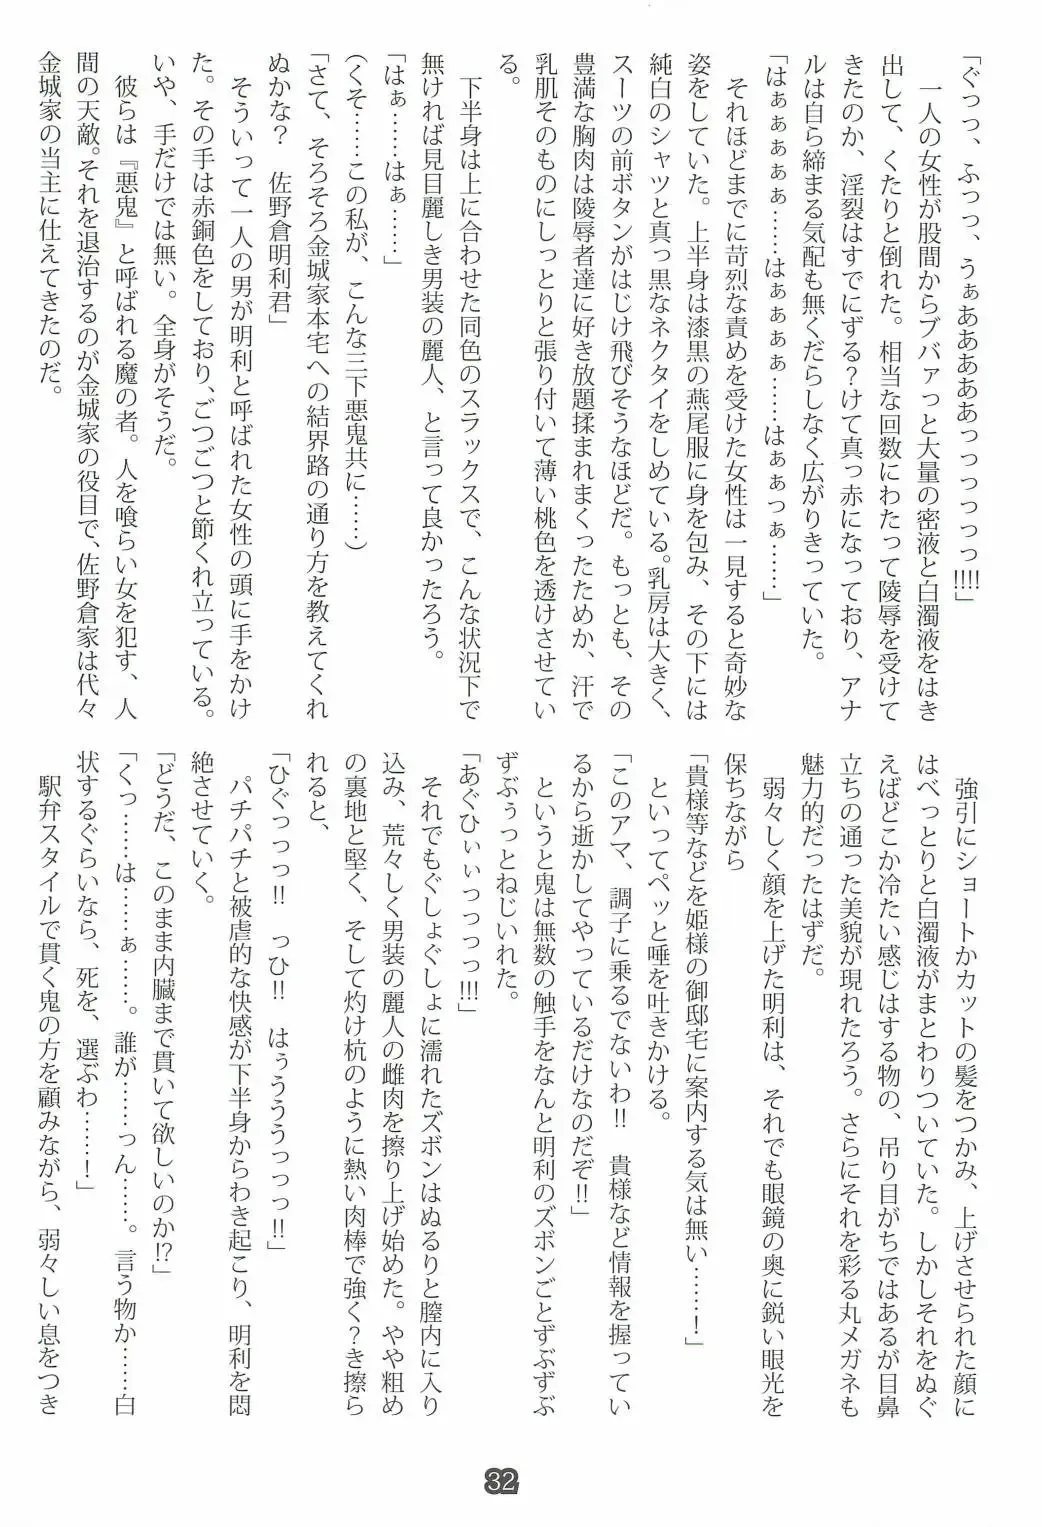 「ぐっっ、ふっっ、うぁああああぁっっっっっ!!!!」
　一人の女性が股間からブバァっと大量の密液と白濁液をはき
出して、くたりと倒れた。相当な回数にわたって陵辱を受けて
きたのか、淫裂はすでにずる？けて真っ赤になっており、アナ
ルは自ら締まる気配も無くだらしなく広がりきっていた。
「はぁぁぁぁぁ……はぁぁぁぁ……はぁぁっぁ……」
　それほどまでに苛烈な責めを受けた女性は一見すると奇妙な
姿をしていた。上半身は漆黒の燕尾服に身を包み、その下には
純白のシャツと真っ黒なネクタイをしめている。乳房は大きく、
スーツの前ボタンがはじけ飛びそうなほどだ。もっとも、その
豊満な胸肉は陵辱者達に好き放題揉まれまくったためか、汗で
乳肌そのものにしっとりと張り付いて薄い桃色を透けさせてい
る。
　下半身は上に合わせた同色のスラックスで、こんな状況下で
無ければ見目麗しき男装の麗人、と言って良かったろう。
「はぁ……はぁ……」
（くそ……この私が、こんな三下悪鬼共に……）
「さて、そろそろ金城家本宅への結界路の通り方を教えてくれ
ぬかな？　佐野倉明利君」
　そういって一人の男が明利と呼ばれた女性の頭に手をかけ
た。その手は赤銅色をしており、ごつごつと節くれ立っている。
いや、手だけでは無い。全身がそうだ。
　彼らは『悪鬼』と呼ばれる魔の者。人を喰らい女を犯す、人
間の天敵。それを退治するのが金城家の役目で、佐野倉家は代々
金城家の当主に仕えてきたのだ。
　強引にショートかカットの髪をつかみ、上げさせられた顔に
はべっとりと白濁液がまとわりついていた。しかしそれをぬぐ
えばどこか冷たい感じはする物の、吊り目がちではあるが目鼻
立ちの通った美貌が現れたろう。さらにそれを彩る丸メガネも
魅力的だったはずだ。
　弱々しく顔を上げた明利は、それでも眼鏡の奥に鋭い眼光を
保ちながら
「貴様等などを姫様の御邸宅に案内する気は無い……！」
　といってペッと唾を吐きかける。
「このアマ、調子に乗るでないわ!!　貴様など情報を握ってい
るから逝かしてやっているだけなのだぞ!!」
　というと鬼は無数の触手をなんと明利のズボンごとずぶずぶ
ずぶぅっとねじいれた。
「あぐひぃぃっっっっ!!!」
　それでもぐしょぐしょに濡れたズボンはぬるりと膣内に入り
込み、荒々しく男装の麗人の雌肉を擦り上げ始めた。やや粗め
の裏地と堅く、そして灼け杭のように熱い肉棒で強く？き擦ら
れると、
「ひぐっっっ!!　っひ!!　はぅうううっっっ!!」
　パチパチと被虐的な快感が下半身からわき起こり、明利を悶
絶させていく。
「どうだ、このまま内臓まで貫いて欲しいのか!?」
「くっ……は……ぁ……。誰が……っん……。言う物か……白
状するぐらいなら、死を、選ぶわ……！」
　駅弁スタイルで貫く鬼の方を顧みながら、弱々しい息をつき
32